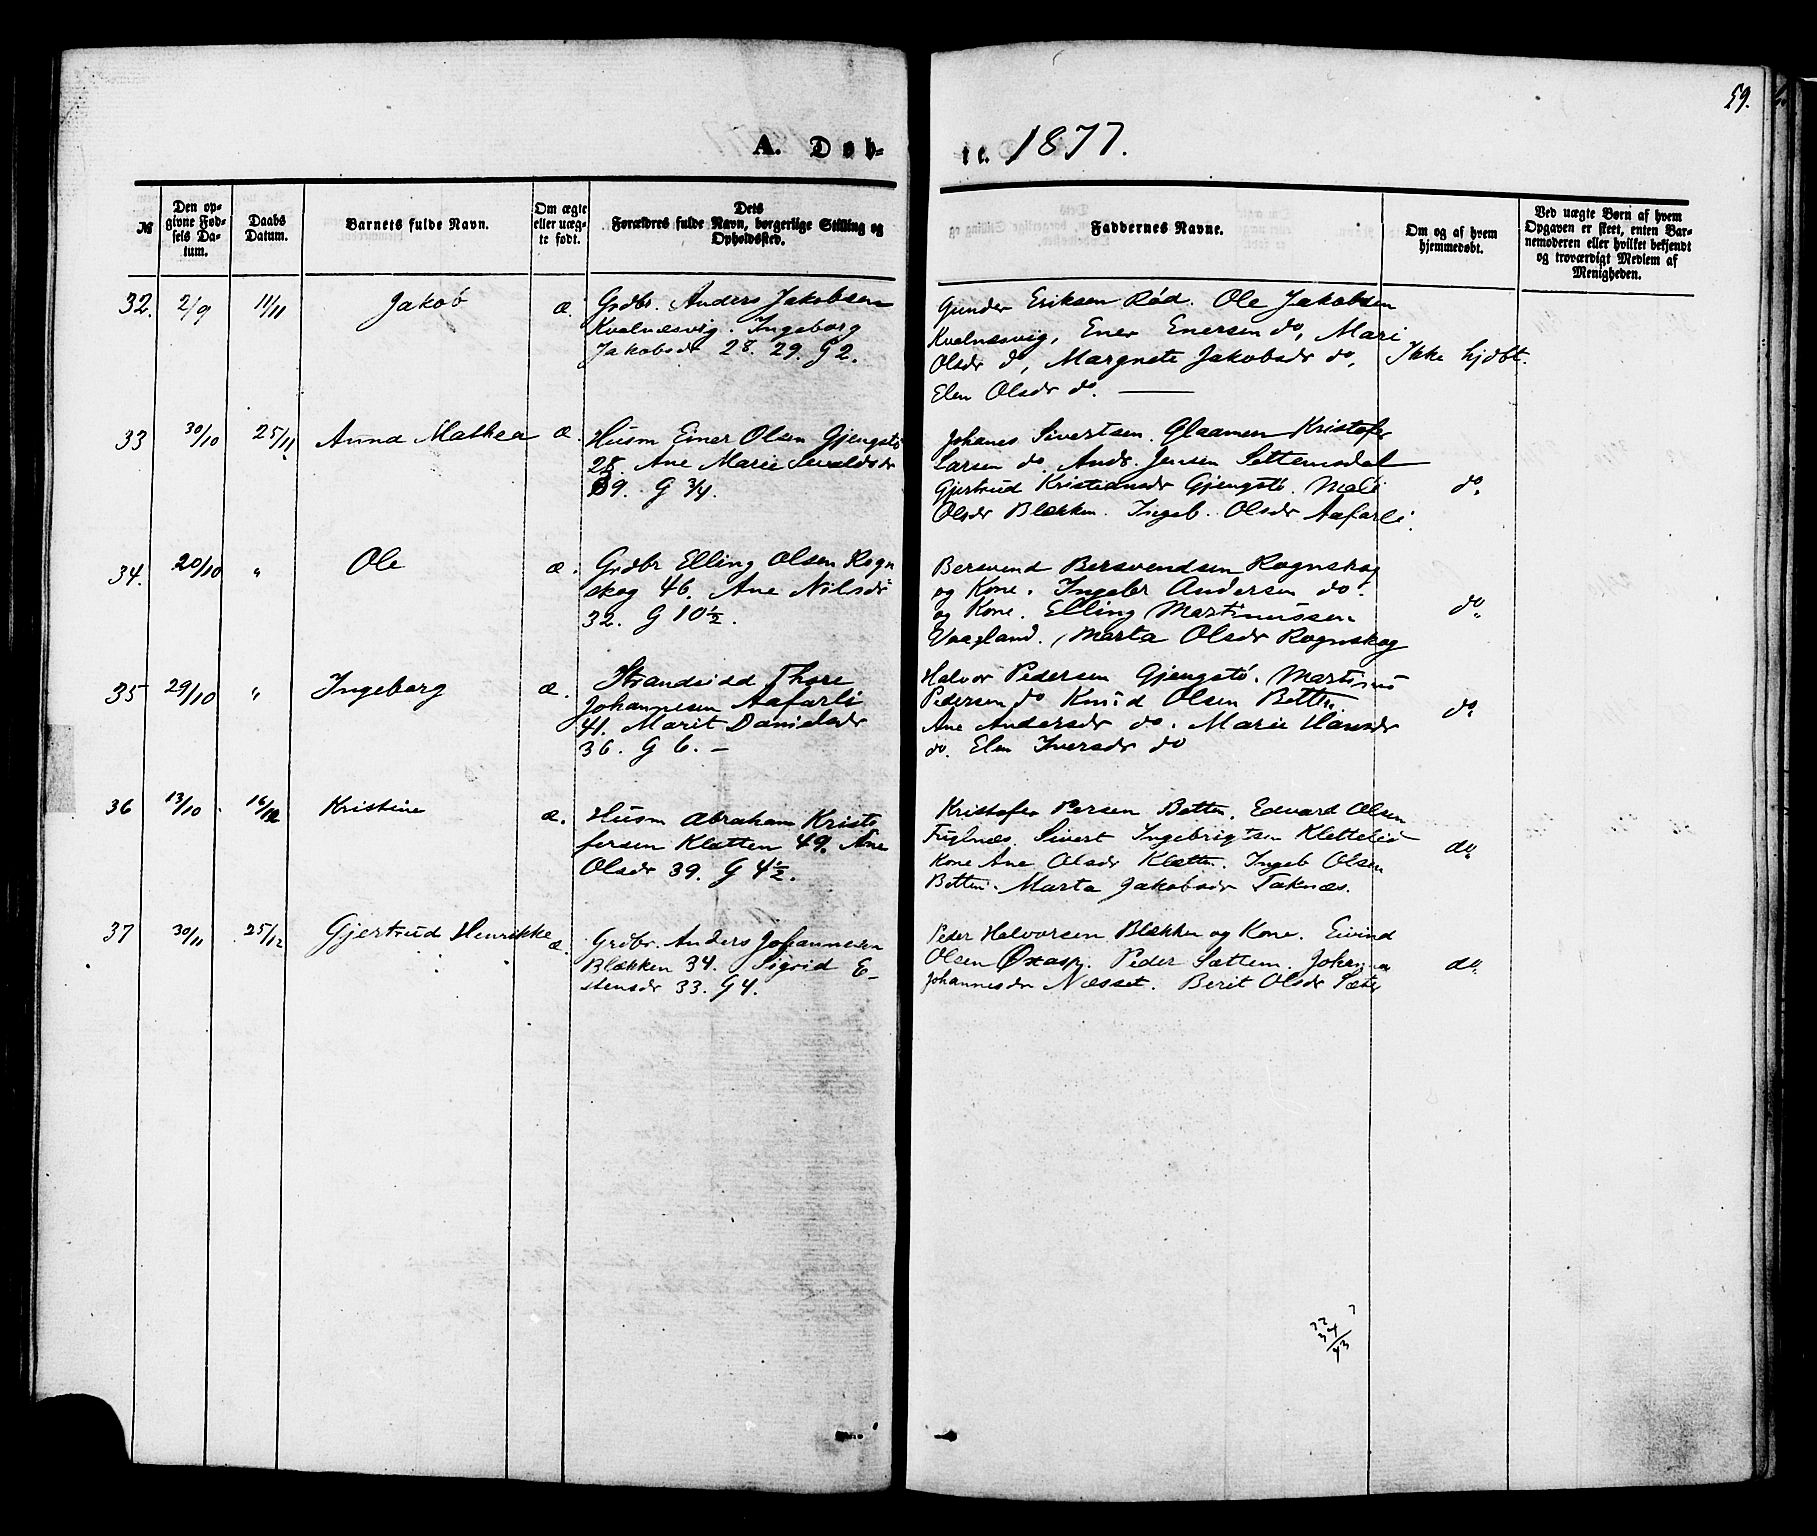 59.
A. Døb-
te. 1877.
№
Den op-
givne Fød-
sels Da-
tum.
Daabs
Datum.
Barnets fulde Navn.
Om ægte
eller uæg-
te født.
Dets
Forældres fulde Navn, borgerlige Stilling og
Opholdssted.
Faddernes Navne.
Om og af hvem
hjemmedøbt.
Ved uægte Børn af hvem
Opgaven er skeet, enten Bar-
nemoderen eller hvilket bekjendt
og troværdigt Medlem af
Menigheden.
32. 2/9 11/11 Jakob æ.
Grdbr. Anders Jakobsen
Kvalnæsvig. Ingeborg
Jakobsdr 28. 29. G 2.
Gunder Eriksen Rød. Ole Jakobsen
Kvalnæsvig, Ener Enersen do, Mari
Olsdr do, Margrete Jakobsdr do,
Elen Olsdr do.
Ikke hjdbt.
33 30/10 25/11 Anna Mathea æ.
Husm Einer Olsen Gjengstö
28. Ane Marie Sivaldsdr
39. G 3/4.
Johanes Sivertsen. Glaamen Kristofer
Larsen do. Ands. Jensen Settemsdal
Gjertrud Kristiansdr Gjengstö. Mali
Olsdr Blekken. Ingeb. Olsdr Aafarli.
do.
34. 20/10 " Ole æ.
Grdbr Elling Olsen Rogn
skog 46. Ane Nilsdr
32. G 10½.
Bersvend Bersvendsen Rognskog
og Kone. Ingebr Andersen do.
og Kone. Elling Martinussen
Vaagland. Marta Olsdr Rognskog
do.
35 29/10 " Ingeborg æ.
Strandsidd Thore
Johannesen Aafarli
41. Marit Danielsdr
36. G 6. –
Halvor Pedersen Gjengstö. Martinus
Pedersen do Knud Olsen Betten
Ane Andersdr do. Marie Hansdr
do. Elen Iversdr do
do.
36 13/10 16/12 Kristine æ.
Husm Abraham Kristo
fersen Kletten 49. Ane
Olsdr 39. G 4½.
Kristofer Persen Betten. Edvard Olsen
Fuglnæs. Sivert Ingebrigtsen Klettelid
Kone Ane Olsdr Kletten. Ingeb Olsen
Betten. Marta Jakobsdr Taknæs.
do.
37 30/11 25/12 Gjertrud Henrikke æ.
Grdbr. Anders Johannesen
Blekken 34. Sigrid E-
stensdr 33. G4.
Peder Halvorsen Blekken og Kone. Eivind
Olsen Øxasp. Peder Sættem. Johanna
Johannesdr Næsset. Berit Olsdr Sæter
do.